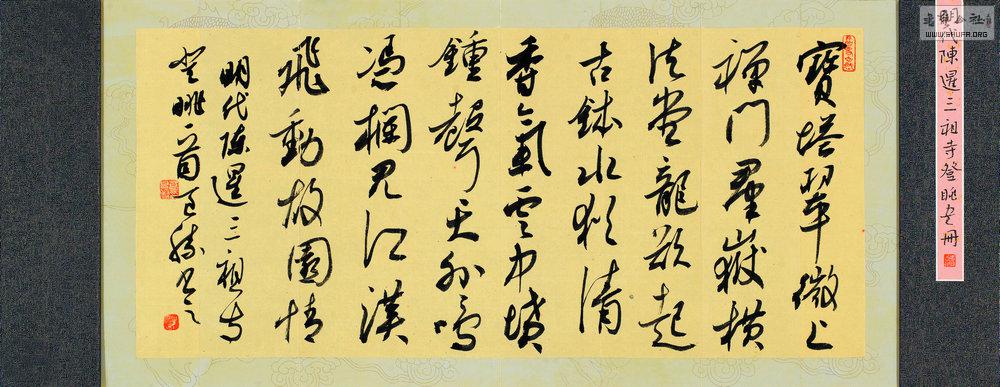 明代陳暹三祖寺登眺書冊
寶塔翠微上
禪門羣嶽橫
法堂龍欲起
古鉢水猶清
香氣雲中噴
鍾聲天外鳴
憑欄見江漢
飛動故園情
明代陳暹三祖寺
登眺一首